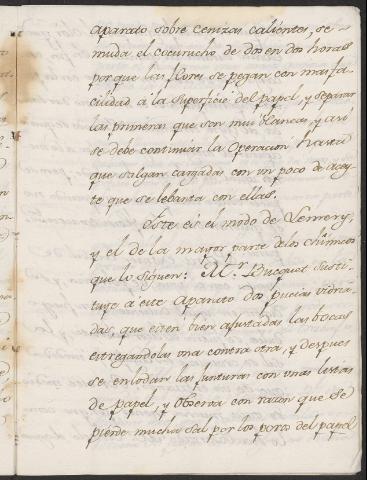 aparato sobre cenizas calientes, se
muda el cucurucho de dos en dos horas
por que las flores se pegan con mas fa-
cilidad á la superficie del papel, y separar
las primeras que son mui blancas, y asi
se debe continuar la operacion hasta
que salgan cargadas con un poco de azey-
te que se lebanta con ellas.
Este es el modo de Lemery,
y el de la mayor parte delos chîmicos
que lo siguen: Mr. Bucquet susti-
tuye a este aparato dos vidria-
das, que esten bien ajustadas las bocas
estregandolas una contra otra, y despues
se enlodan las junturas con unas listas
de papel, y observa con razon que se
pierde mucha sal por los poros del papel